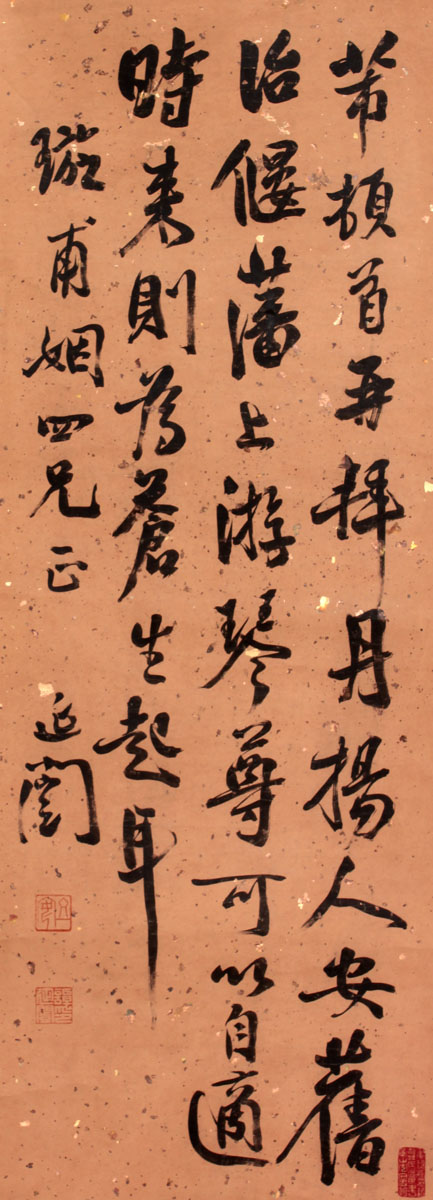 芾頓首再拜丹揚人安舊
治偃藩上游琴尊可以自適
時来則為蒼生起耳
甫姻四兄正 延闓